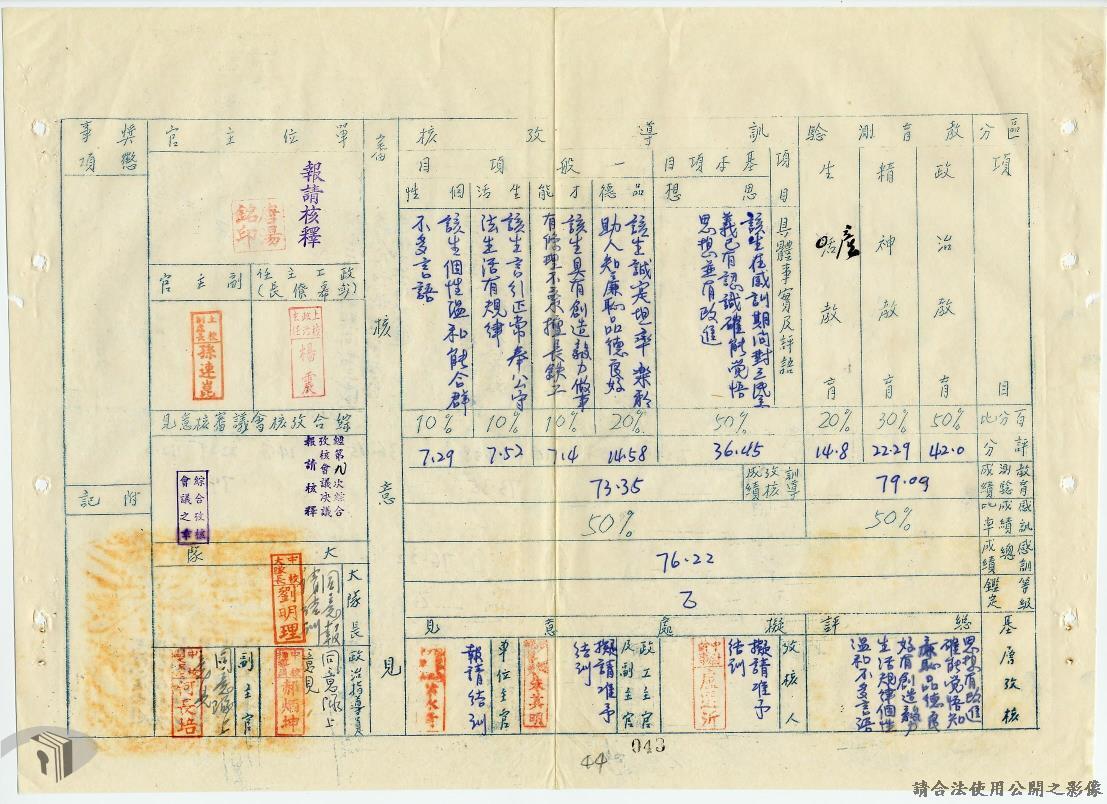 區分
項目
百分比
評分
教育測驗
政治教育
精神教育
生產教育
50%
30%
20%
42.0
22.29
14.8
教育測驗成績
79.09
訓導考核
項目
具體事實及評語
基本項目
思想
該生在感訓期間對三民主
義已有認識確能覺悟
思想並有改進
50%
36.45
一般項目
品德
該生誠实坦率樂於
助人知廉恥品德良好
20%
14.58
才能
該生具有創造毅力做事
有條理不紊擅長鉄工
10%
7.4
生活
該生言行正常奉公守
法生活有規律
10%
7.52
個性
該生個性溫和能合群
不多言語
10%
7.29
訓導考核成績
73.35
感訓成績比率
50%
50%
感訓總成績
76.22
感訓等級鑑定
乙
基層考核
總評
思想有改進
確能覺悟知
廉恥品德良
好有創造毅力
生活規律個性
溫和不多言語
擬處意見
考核人
擬請准予
結訓
政工主官
民副主官
擬請准予
結訓
朱英明
單位主官
報請結訓
核意見
單位主官
報請核釋
政工主任
(政幕僚長)
上校
政治
主任
楊震
副主官
上校
副處長
孫連崑
綜合考核會議審核意見
經第九次綜合
考核會議決議
報請核釋
綜合考核
會議之章
大隊
大隊長
同意報請結訓
中校
大隊長
劉明理
政治指導員
同意隊上
意見
副主官
同意隊上
意見
獎懲事項
附記
043
44
請合法使用公開之影像